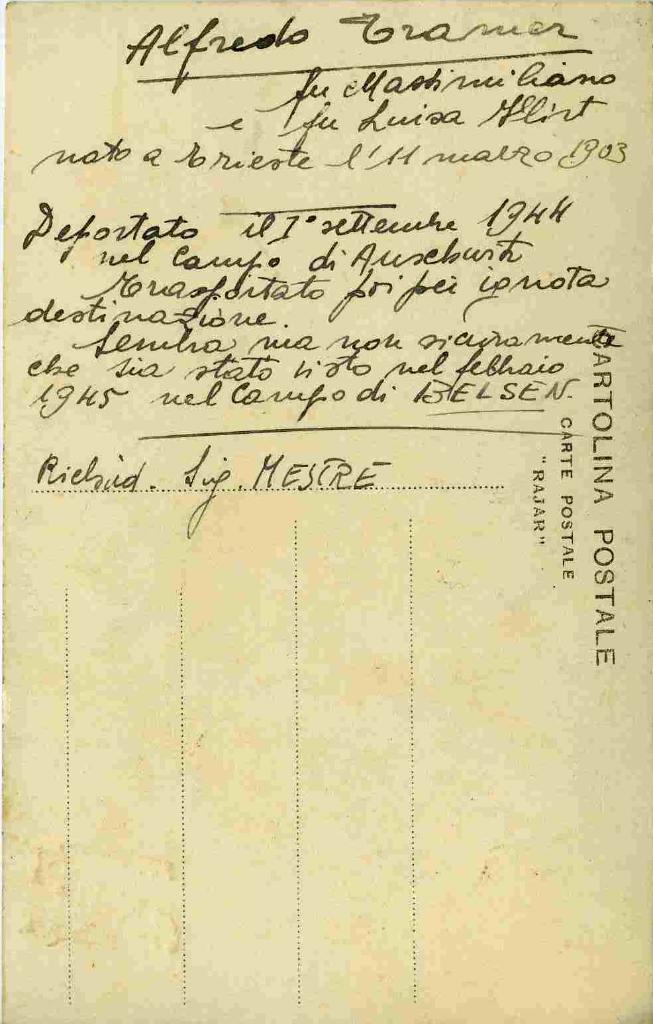 Alfredo Tramer
fu Massimiliano
e fu Luisa
nato a Trieste l'11 marzo 1903
Deportato il 1° settembre 1944
nel Campo di Auschwitz
Trasportato poi per ignota
destinazione.
Sembra ma non sicuramente
che sia stato visto nel febbraio
1945 nel Campo di BELSEN.
Richied. Sig. MESTRE
CARTOLINA POSTALE
CARTE POSTALE
"RAJAR"